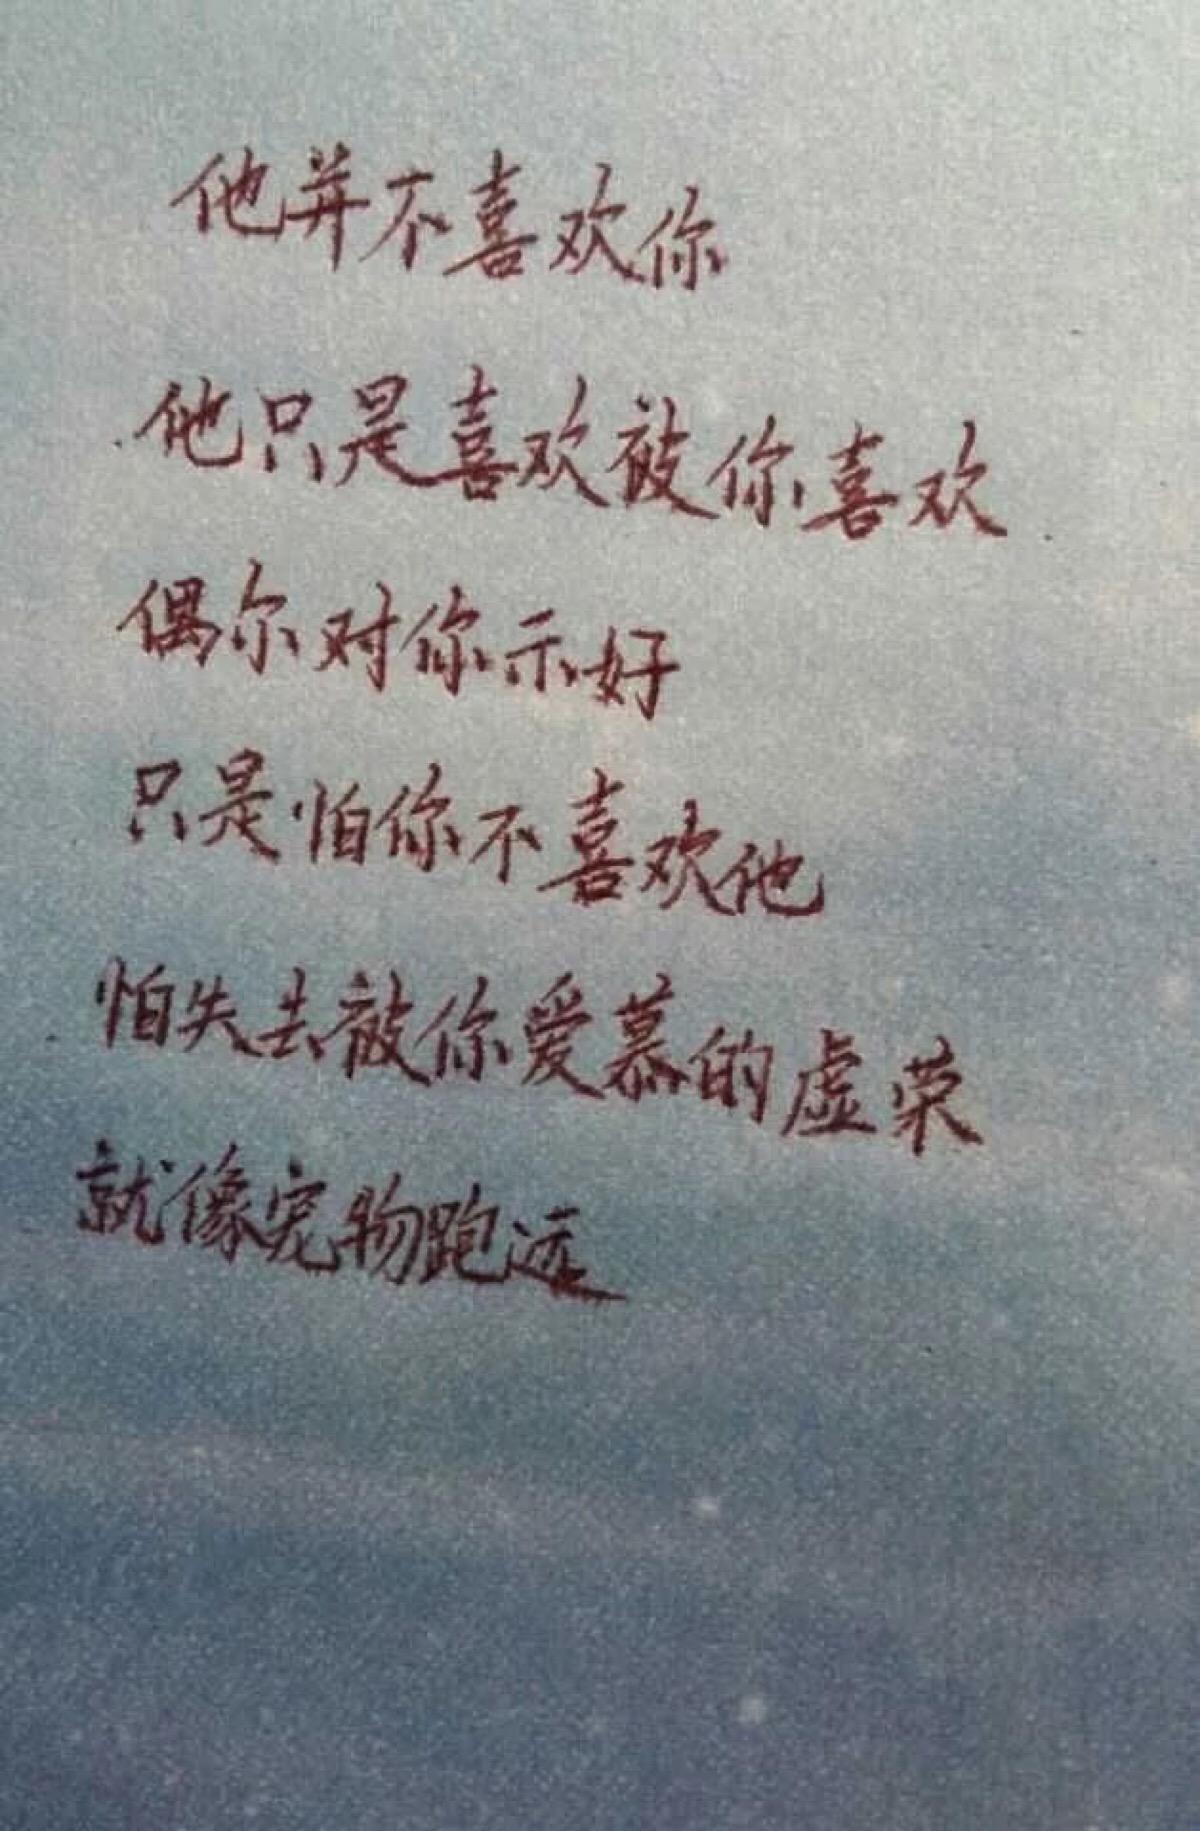 他并不喜欢你
他只是喜欢被你喜欢
偶尔对你示好
只是怕你不喜欢他
怕失去被你爱慕的虚荣
就像宠物跑远